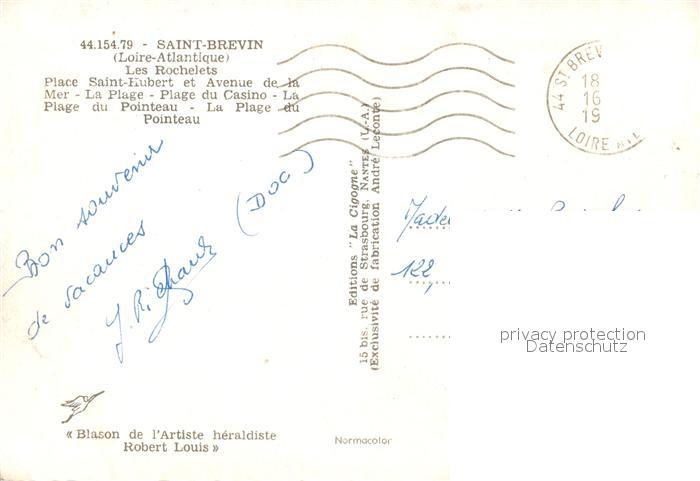 44.154.79 - SAINT-BREVIN
(Loire-Atlantique)
Les Rochelets
Place Saint-Hubert et Avenue de la
Mer - La Plage - Plage du Casino - La
Plage du Pointeau - La Plage du
Pointeau
44 ST BREV
18
16
19
LOIRE
Bon souvenir
de vacances
(Doc)
J. Richard
Editions "La Cigogne"
15 bis, rue de Strasbourg, NANTES (L.-A.)
(Exclusivité de fabrication André Leconte)
122,
privacy protection
Datenschutz
« Blason de l'Artiste héraldiste
Robert Louis »
Normacolor